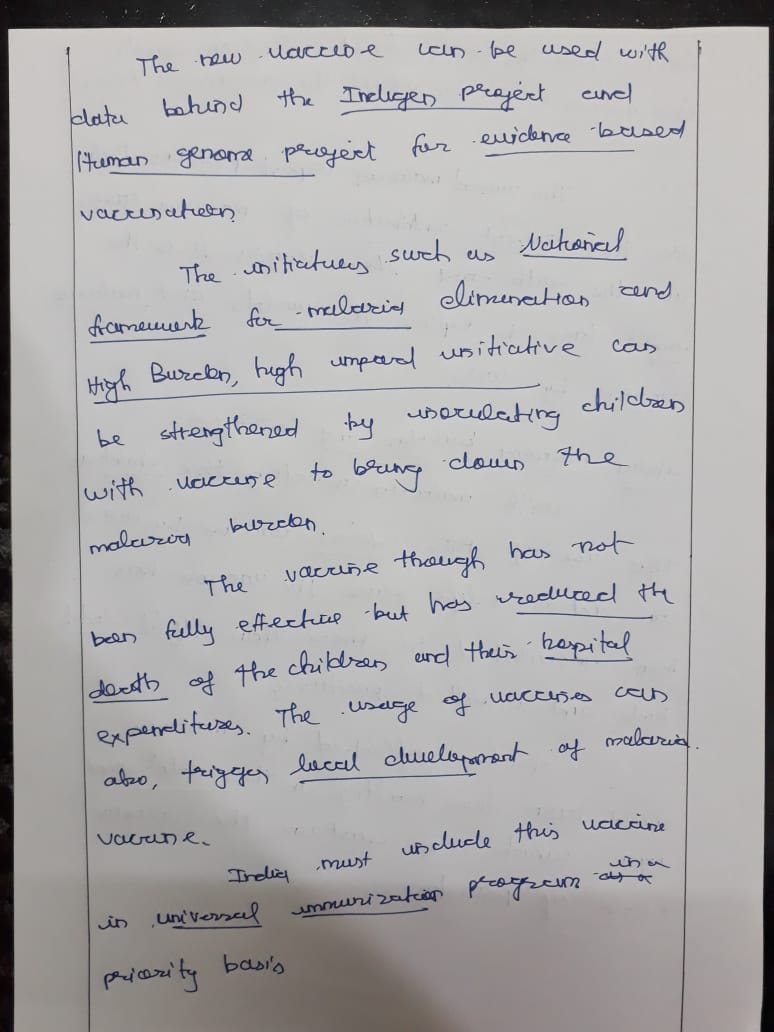 The new vaccine can be used with
data behind the Indigen project and
Human genome project for evidence based
vaccination.
The initiatives such as National
framework for malaria elimination and
High Burden, high impact initiative can
be strengthened by inoculating children
with vaccine to bring down the
malaria burden.
The vaccine though has not
been fully effective but has reduced the
death of the children and their hospital
expenditures. The usage of vaccines can
also, trigger local development of malaria
vaccine.
India must include this vaccine
in universal immunization program in a
priority basis